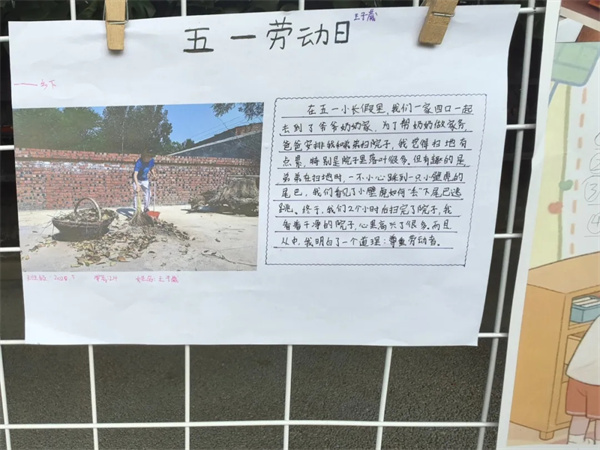 五一劳动日
在五一小长假里,我们一家四口一起
去到了爷爷奶奶家,为了帮奶奶做家务,
爸爸安排我和弟弟扫院子,我觉得扫地有
点累,特别是院子里落叶很多。但有趣的是,
弟弟在扫地时,一不小心踩到一只小壁虎的
尾巴,我们看见了小壁虎如何丢下尾巴逃
跑。终于,我们2个小时后扫完了院子,我
看着干净的院子,心里高兴了很多。而且
从中,我明白了一个道理:尊重劳动者。